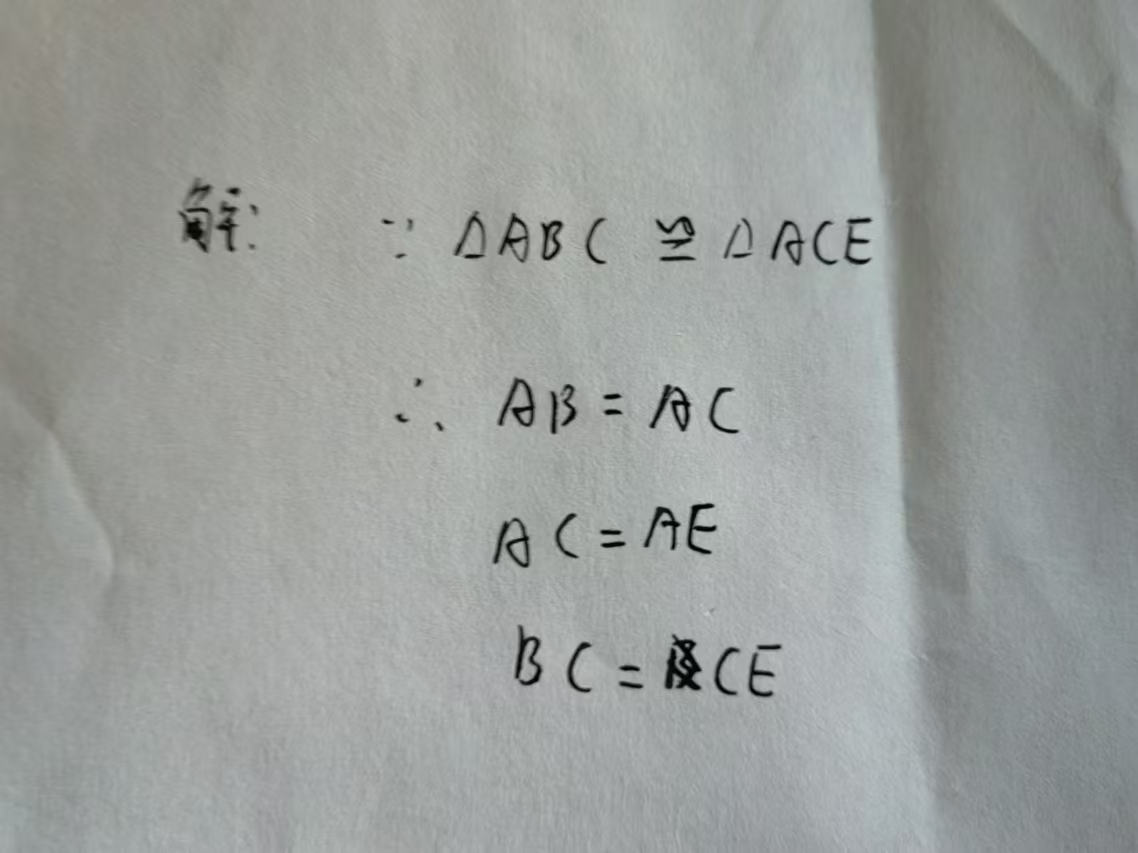 解: ∵ △ABC ≌ △ACE
∴ AB = AC
AC = AE
BC = CE